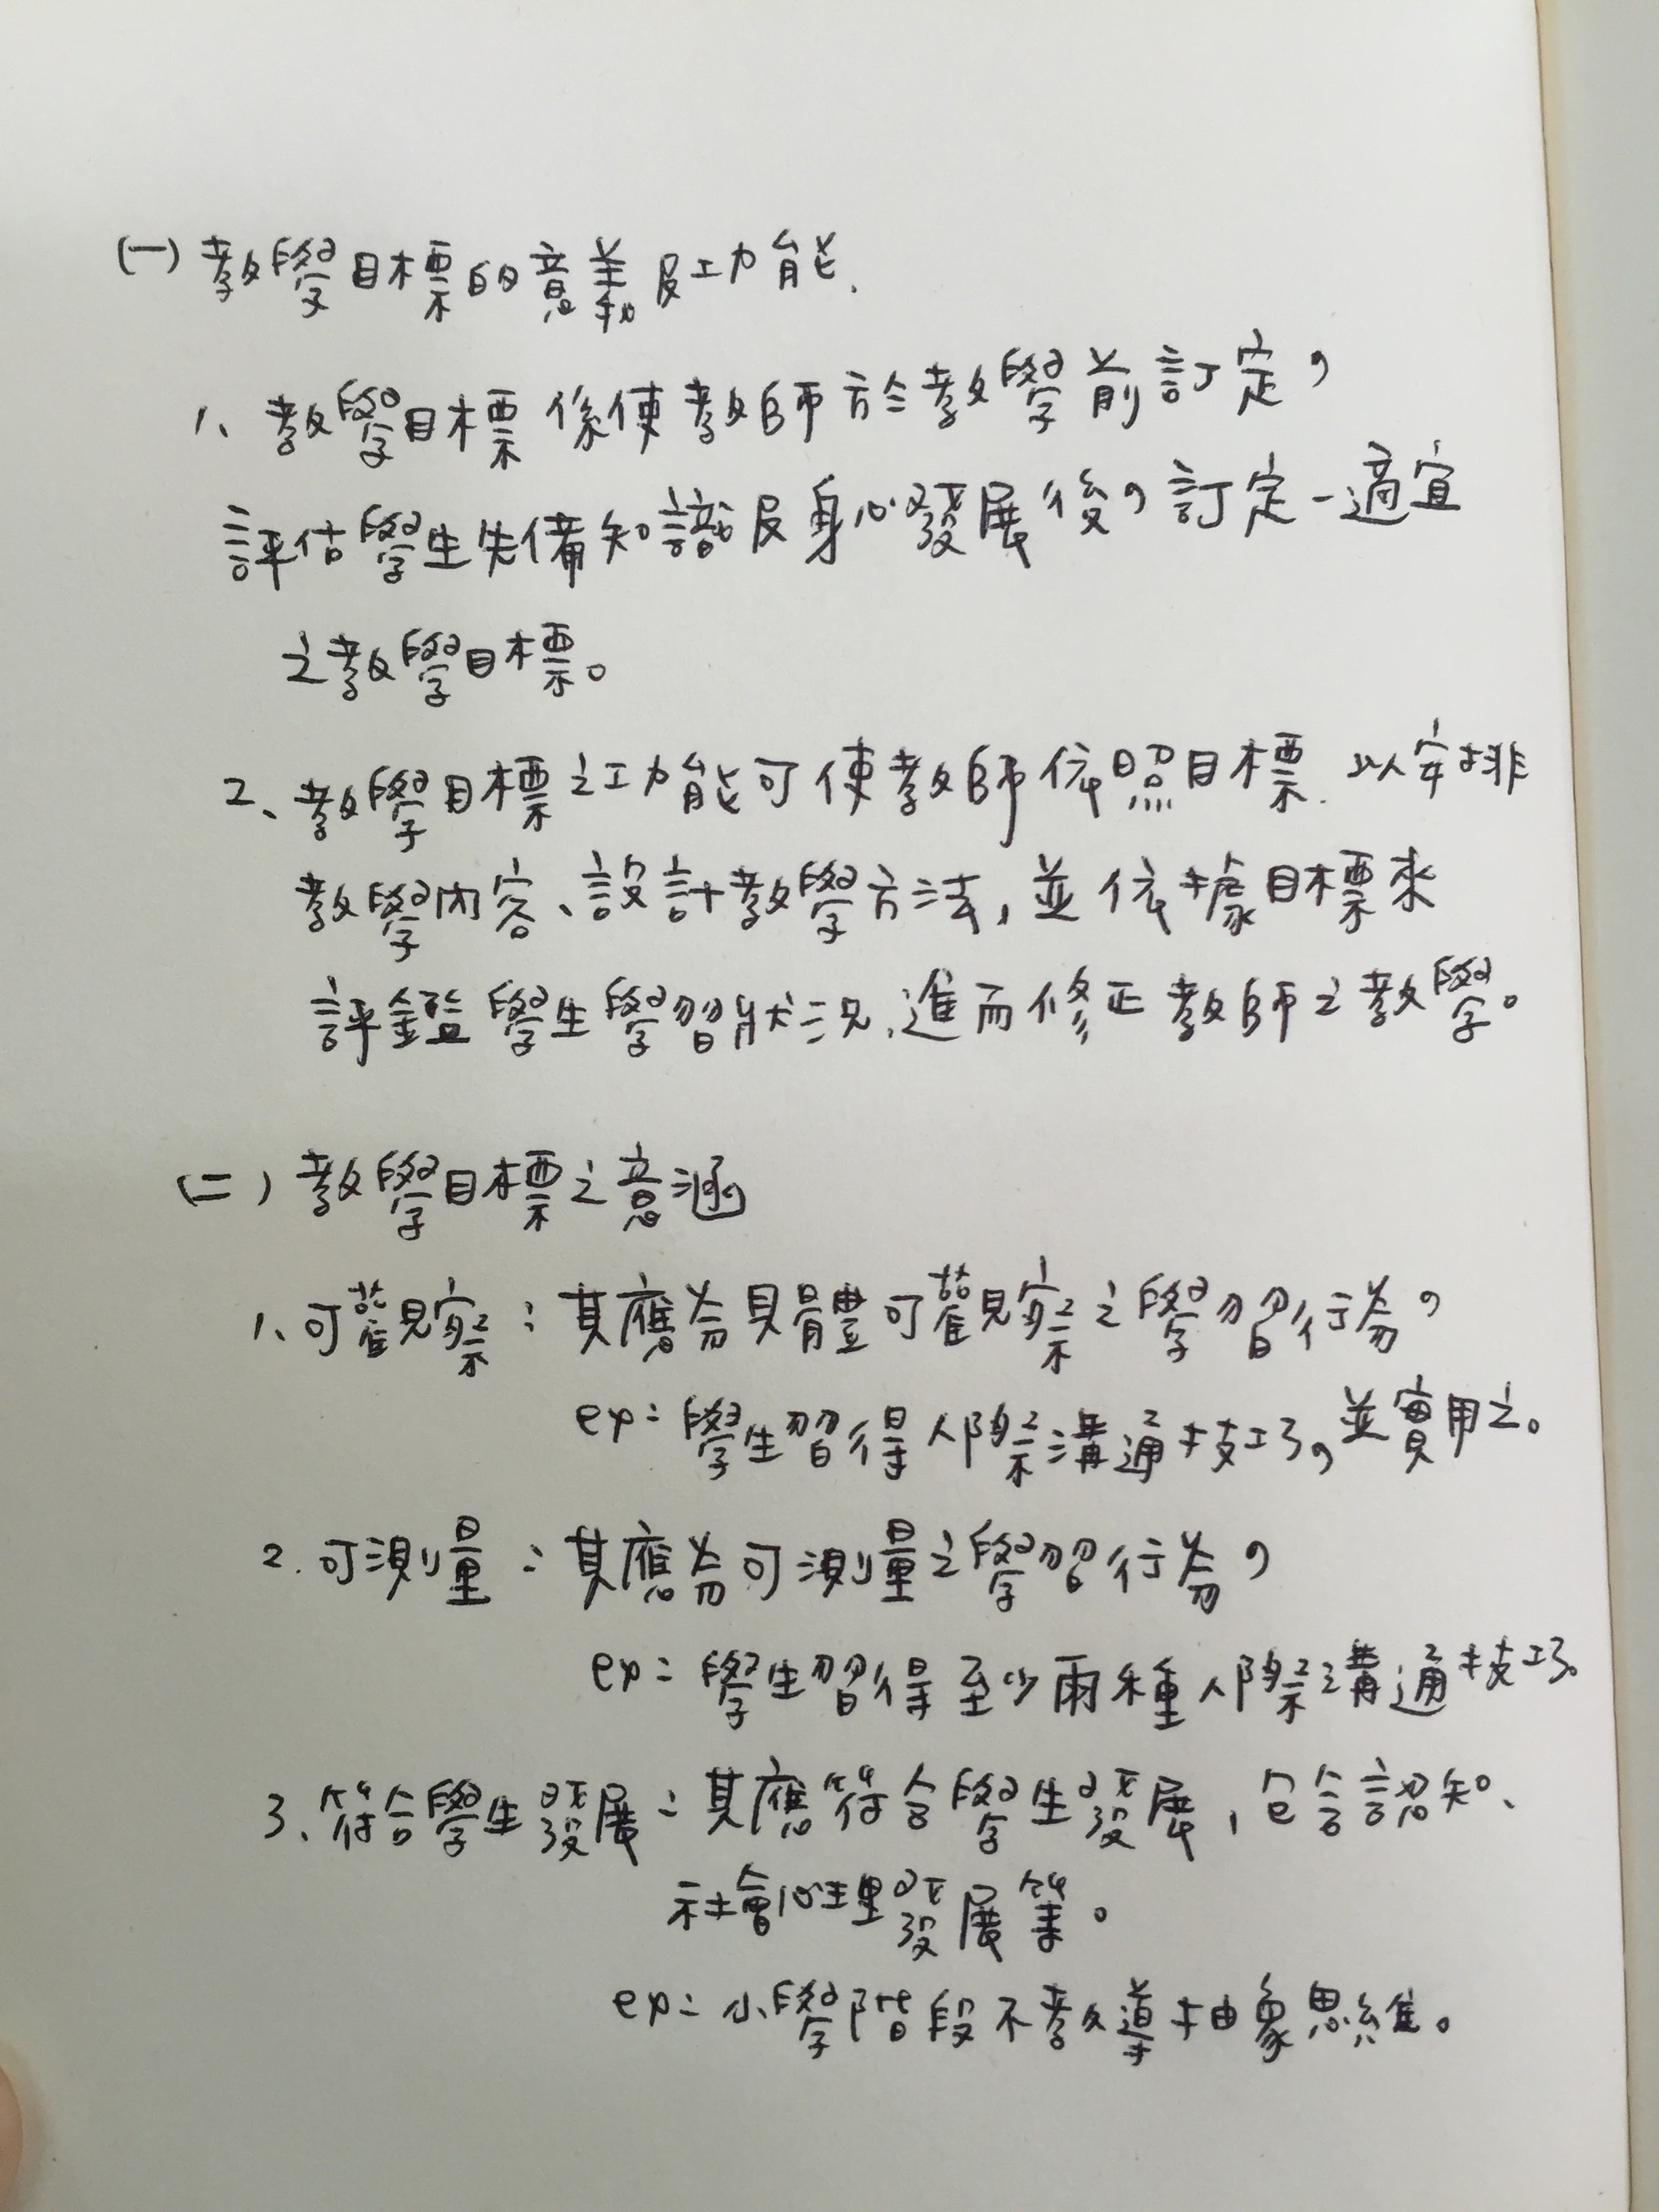 (一) 教學目標的意義及功能.
1、教學目標係使教師於教學前訂定，
評估學生先備知識及身心發展後，訂定一適宜
之教學目標。
2、教學目標之功能可使教師依照目標.以安排
教學內容、設計教學方法,並依據目標來
評鑑學生學習狀況,進而修正教師之教學。
(二) 教學目標之意涵
1、可觀察：其應為具體可觀察之學習行為，
ex：學生習得人際溝通技巧，並實用之。
2.可測量：其應為可測量之學習行為，
ex：學生習得至少兩種人際溝通技巧。
3、符合學生發展：其應符合學生發展,包含認知、
社會心理發展等。
ex：小學階段不教導抽象思維。